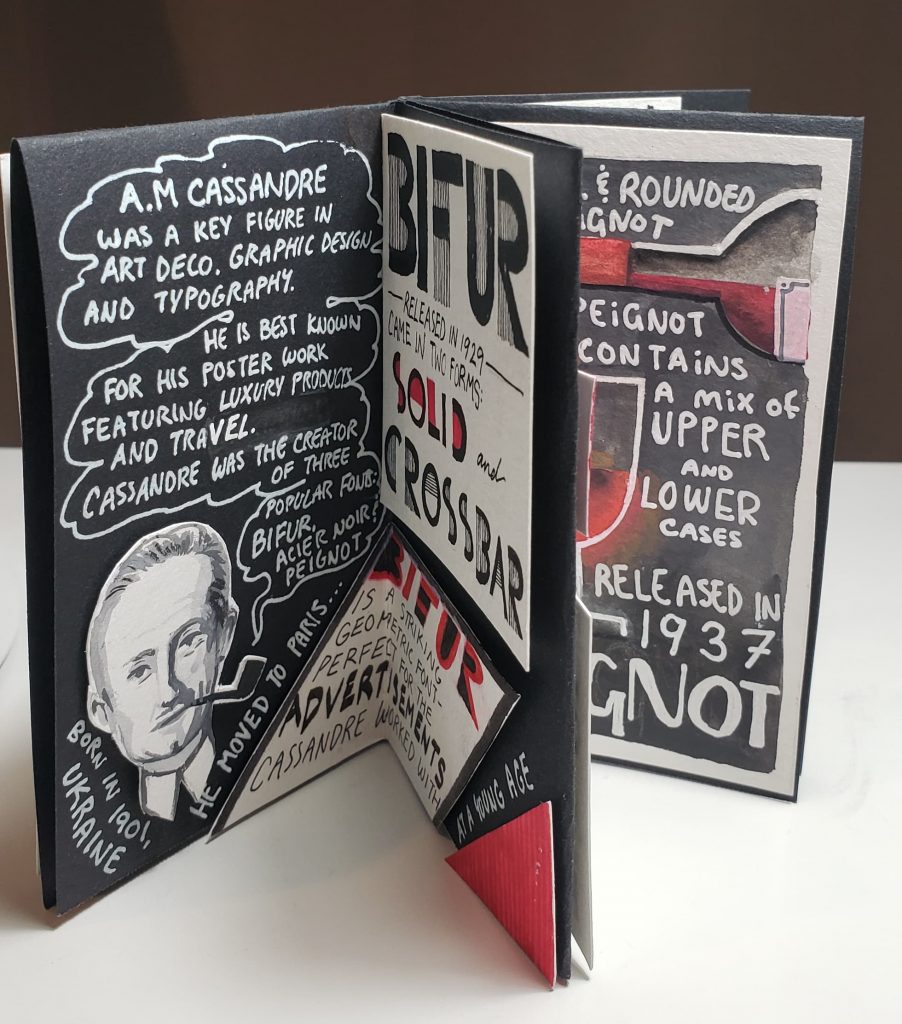 A.M CASSANDRE
WAS A KEY FIGURE IN
ART DECO. GRAPHIC DESIGN
AND TYPOGRAPHY.
HE IS BEST KNOWN
FOR HIS POSTER WORK
FEATURING LUXURY PRODUCTS
AND TRAVEL.
CASSANDRE WAS THE CREATOR
OF THREE
POPULAR FONTS:
BIFUR,
ACIER NOIR &
PEIGNOT
BORN IN 1901,
UKRAINE
HE MOVED TO PARIS...
AT A YOUNG AGE
BIFUR
RELEASED IN 1929
CAME IN TWO FORMS:
SOLID
and
CROSSBAR
BIFUR
IS A STRIKING
GEOMETRIC FONT-
PERFECT FOR THE
ADVERTISEMENTS
CASSANDRE WORKED WITH
& ROUNDED
PEIGNOT
CONTAINS
A mix of
UPPER
AND
LOWER
CASES
RELEASED IN
1937
GNOT